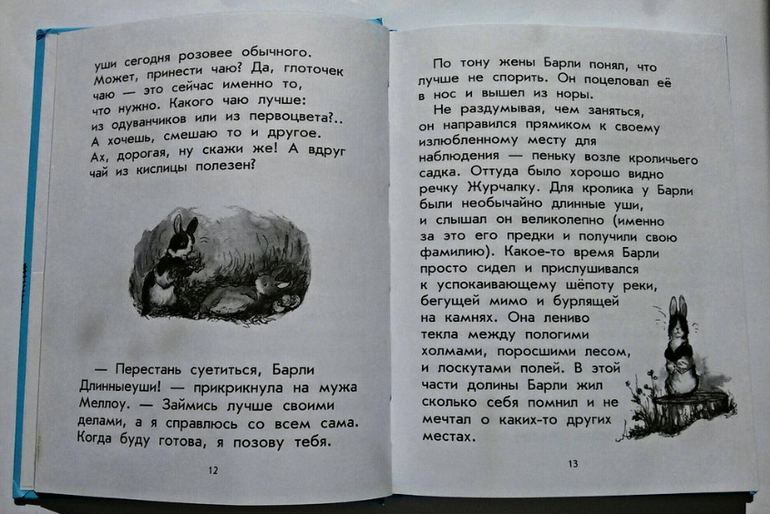 уши сегодня розовее обычного.
Может, принести чаю? Да, глоточек
чаю — это сейчас именно то,
что нужно. Какого чаю лучше:
из одуванчиков или из первоцвета?..
А хочешь, смешаю то и другое.
Ах, дорогая, ну скажи же! А вдруг
чай из кислицы полезен?
— Перестань суетиться, Барли
Длинныеуши! — прикрикнула на мужа
Меллоу. — Займись лучше своими
делами, а я справлюсь со всем сама.
Когда буду готова, я позову тебя.
12
По тону жены Барли понял, что
лучше не спорить. Он поцеловал её
в нос и вышел из норы.
Не раздумывая, чем заняться,
он направился прямиком к своему
излюбленному месту для
наблюдения — пеньку возле кроличьего
садка. Оттуда было хорошо видно
речку Журчалку. Для кролика у Барли
были необычайно длинные уши,
и слышал он великолепно (именно
за это его предки и получили свою
фамилию). Какое-то время Барли
просто сидел и прислушивался
к успокаивающему шёпоту реки,
бегущей мимо и бурлящей
на камнях. Она лениво
текла между пологими
холмами, поросшими лесом,
и лоскутами полей. В этой
части долины Барли жил
сколько себя помнил и не
мечтал о каких-то других
местах.
13